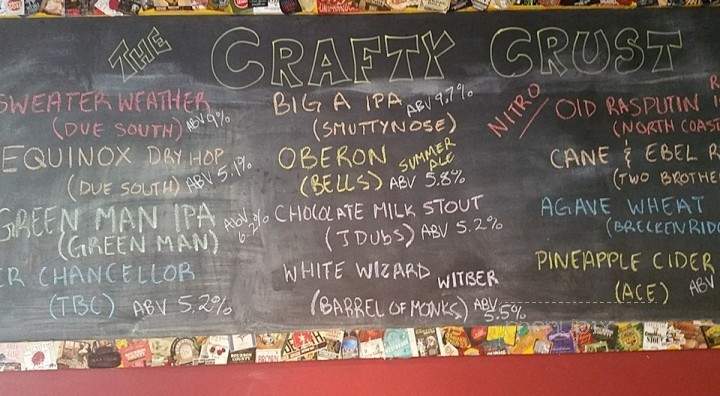 THE CRAFTY CRUST
SWEATER WEATHER
(DUE SOUTH) ABV 9%
EQUINOX DRY HOP
(DUE SOUTH) ABV 5.1%
GREEN MAN IPA
(GREEN MAN) ABV 6.2%
ER CHANCELLOR
(TBC) ABV 5.2%
BIG A IPA ABV 9.7%
(SMUTTYNOSE)
OBERON SUMMER ALE
(BELLS) ABV 5.8%
CHOCOLATE MILK STOUT
(JDUBS) ABV 5.2%
WHITE WIZARD WITBER
(BARREL OF MONKS) ABV 5.5%
NITRO
OLD RASPUTIN R
(NORTH COAST
CANE & EBEL R
(TWO BROTHE
AGAVE WHEAT
(BRECKENRIDG
PINEAPPLE CIDER
(ACE) ABV